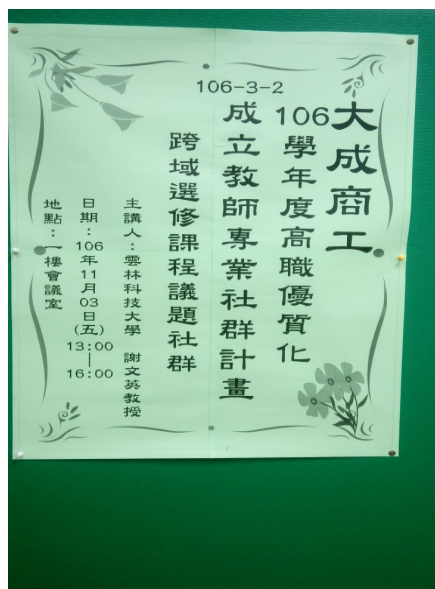 大成商工
106學年度高職優質化
106-3-2
成立教師專業社群計畫
跨域選修課程議題社群
主講人：雲林科技大學 謝文英教授
日期：106年11月03日(五)13:00—16:00
地點：一樓會議室